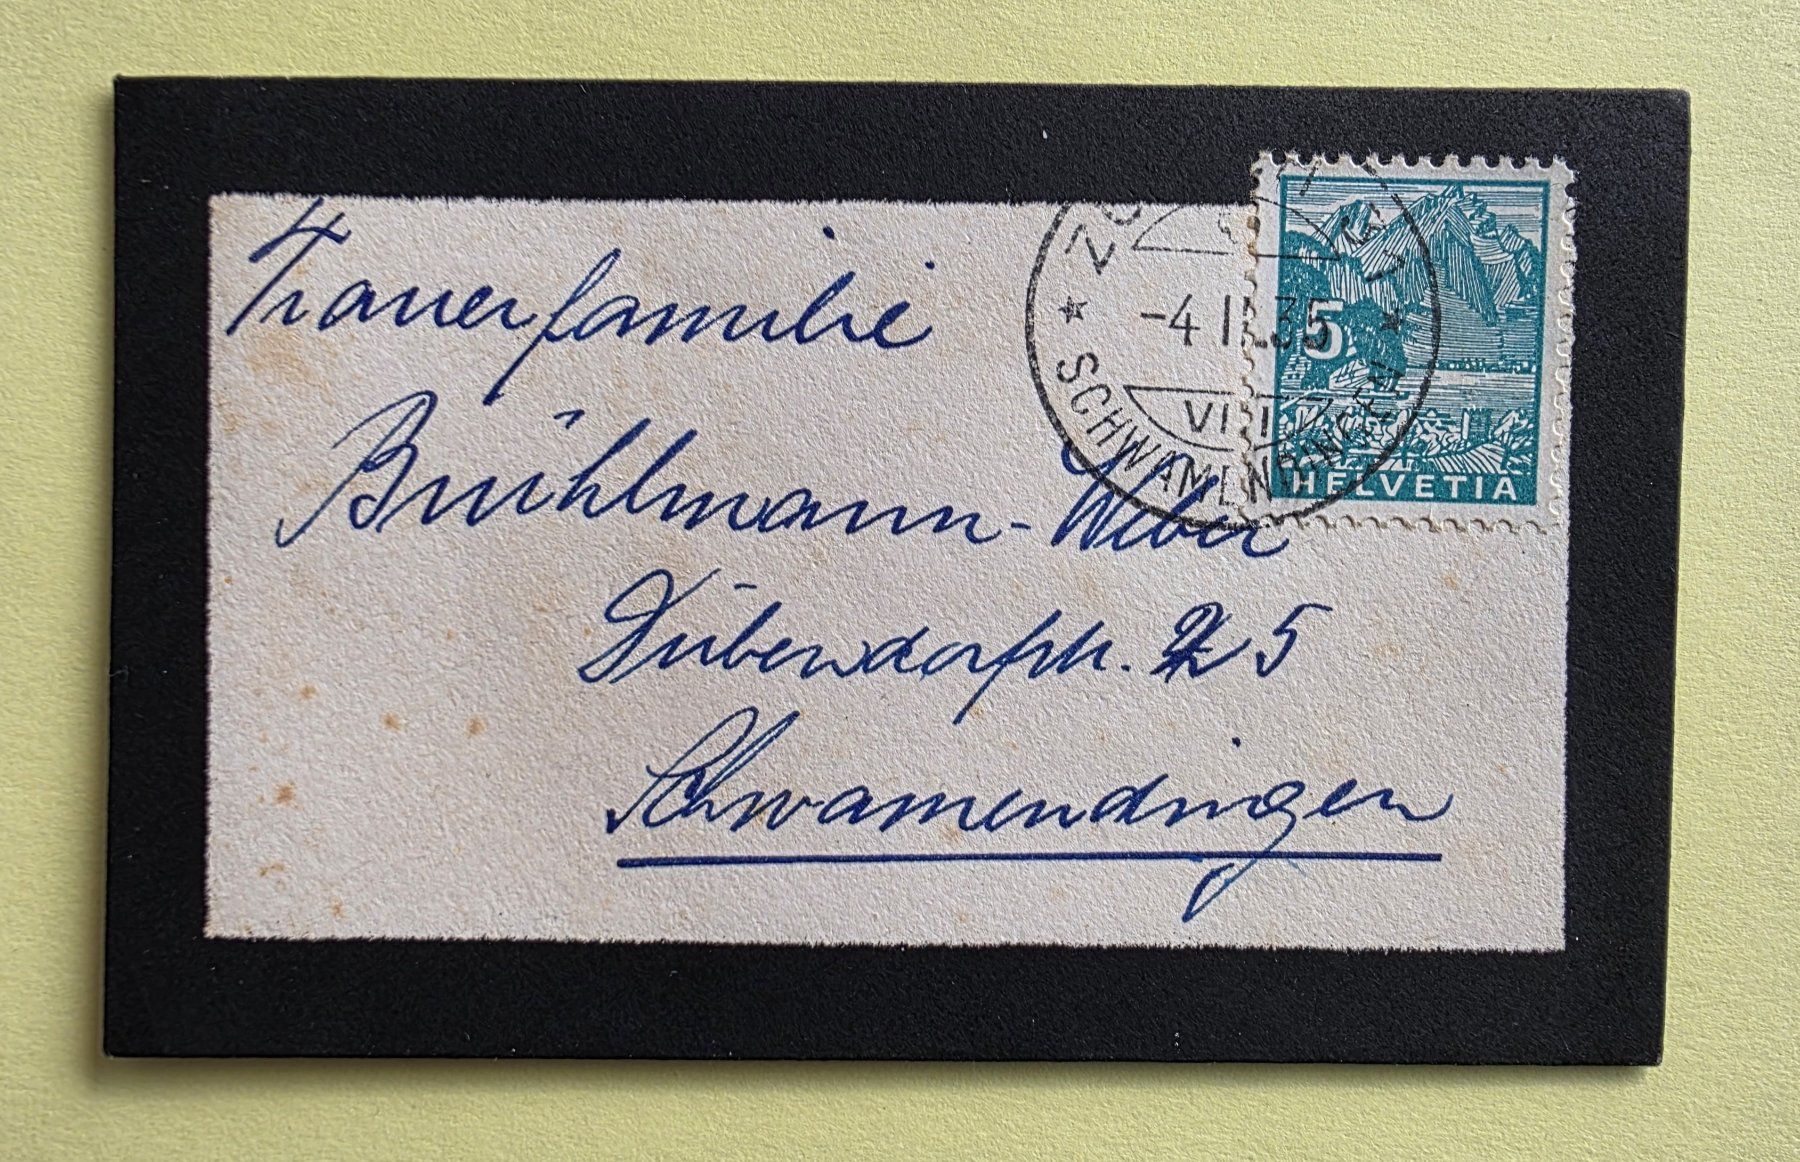 Trauerfamilie
Brühlmann-Weber
Dübendorfstr. 25
Schwamendingen
-4 II.35
VIII
★ SCHWAMENDINGEN ★
5
HELVETIA